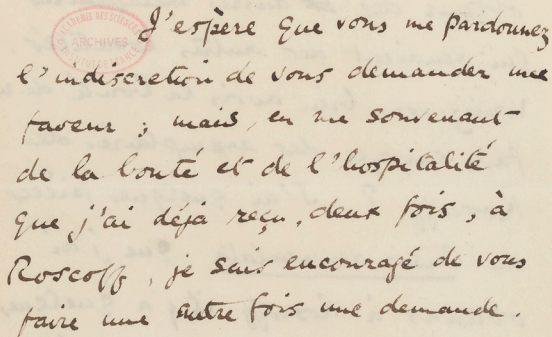 ACADEMIE DES SCIENCES
ARCHIVES
J'espère que vous me pardonnez
l'indiscretion de vous demander une
faveur ; mais, en me souvenant
de la bonté et de l'hospitalité
que j'ai déjà reçu, deux fois, à
Roscoff, je suis encouragé de vous
faire une autre fois une demande.